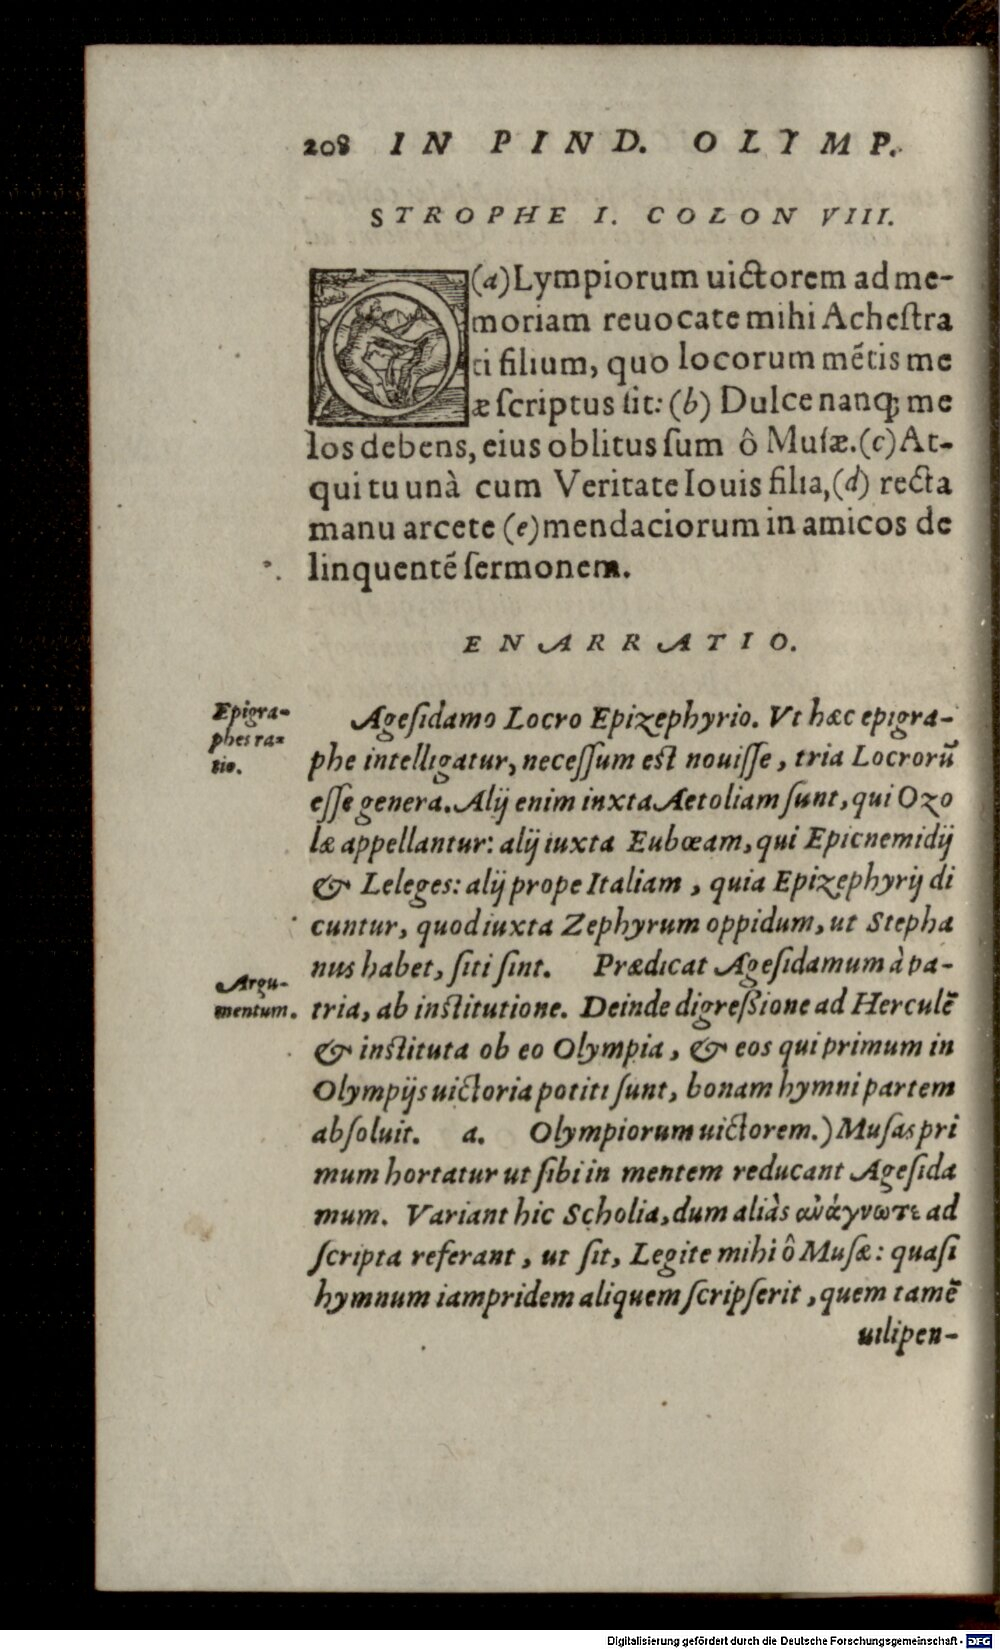 208 IN PIND. OLYMP.
STROPHE I. COLON VIII.
O(a)Lympiorum uictorem ad me-
moriam reuocate mihi Acheſtra
ti filium, quo locorum mẽtis me
æ ſcriptus ſit: (b) Dulce nanq; me
los debens, eius oblitus ſum ô Muſæ.(c)At-
qui tu unà cum Veritate Iouis filia,(d) recta
manu arcete (e)mendaciorum in amicos de
linquentẽ ſermonem.
ENARRATIO.
Epigra-
phes ra-
tio.
Ageſidamo Locro Epizephyrio. Vt hæc epigra-
phe intelligatur, neceſſum eſt nouiſſe, tria Locrorũ
eſſe genera. Alij enim inxta Aetoliam ſunt, qui Ozo
læ appellantur: alij iuxta Eubœam, qui Epicnemidij
& Leleges: alij prope Italiam, quia Epizephyrij di
cuntur, quod iuxta Zephyrum oppidum, ut Stepha
nus habet, ſiti ſint. Prædicat Ageſidamum à pa-
Argu-
mentum.
tria, ab inſtitutione. Deinde digreßione ad Herculẽ
& inſtituta ob eo Olympia, & eos qui primum in
Olympijs uictoria potiti ſunt, bonam hymni partem
abſoluit. a. Olympiorum uictorem.) Muſas pri
mum hortatur ut ſibi in mentem reducant Ageſida
mum. Variant hic Scholia, dum aliàs ἀνάγνωτε ad
ſcripta referant, ut ſit, Legite mihi ô Muſæ: quaſi
hymnum iampridem aliquem ſcripſerit, quem tamẽ
uilipen-
Digitalisierung gefördert durch die Deutsche Forschungsgemeinschaft - DFG